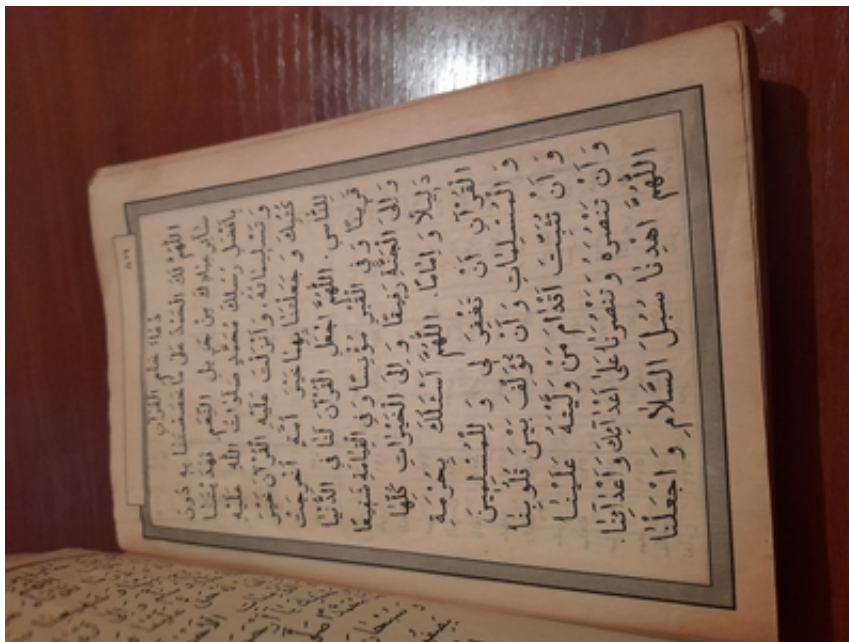 دُعَاءُ خَتْمِ الْقُرْآنِ
اَللّٰهُمَّ لَكَ الْحَمْدُ عَلٰى مَا خَصَصْتَنَا بِهِ دُونَ
سَائِرِ عِبَادِكَ مِنْ جَزِيلِ النِّعَمِ فَهَدَيْتَنَا
بِأَفْضَلِ رُسُلِكَ مُحَمَّدٍ صَلَوَاتُ اللّٰهِ عَلَيْهِ
وَتَسْلِيمَاتُهُ وَأَنْزَلْتَ عَلَيْهِ الْقُرْآنَ خَيْرَ
كُتُبِكَ وَجَعَلْتَنَا بِهِمَا خَيْرَ أُمَّةٍ أُخْرِجَتْ
لِلنَّاسِ. اَللّٰهُمَّ اجْعَلِ الْقُرْآنَ لَنَا فِي الدُّنْيَا
قَرِينًا وَفِي الْقَبْرِ مُؤْنِسًا وَفِي الْقِيَامَةِ شَفِيعًا
وَإِلَى الْجَنَّةِ رَفِيقًا وَإِلَى الْخَيْرَاتِ كُلِّهَا
دَلِيلًا وَإِمَامًا. اَللّٰهُمَّ أَسْئَلُكَ بِحُرْمَةِ
الْقُرْآنِ أَنْ تَغْفِرَ لِي وَلِلْمُسْلِمِينَ
وَالْمُسْلِمَاتِ وَأَنْ تُؤَلِّفَ بَيْنَ قُلُوبِنَا
وَأَنْ تُثَبِّتَ أَقْدَامَ مَنْ وَلَّيْتَهُ عَلَيْنَا
وَأَنْ تَنْصُرَهُ وَتَنْصُرَنَا عَلٰى أَعْدَائِكَ وَأَعْدَائِنَا.
اَللّٰهُمَّ اهْدِنَا سُبُلَ السَّلَامِ وَاجْعَلْنَا